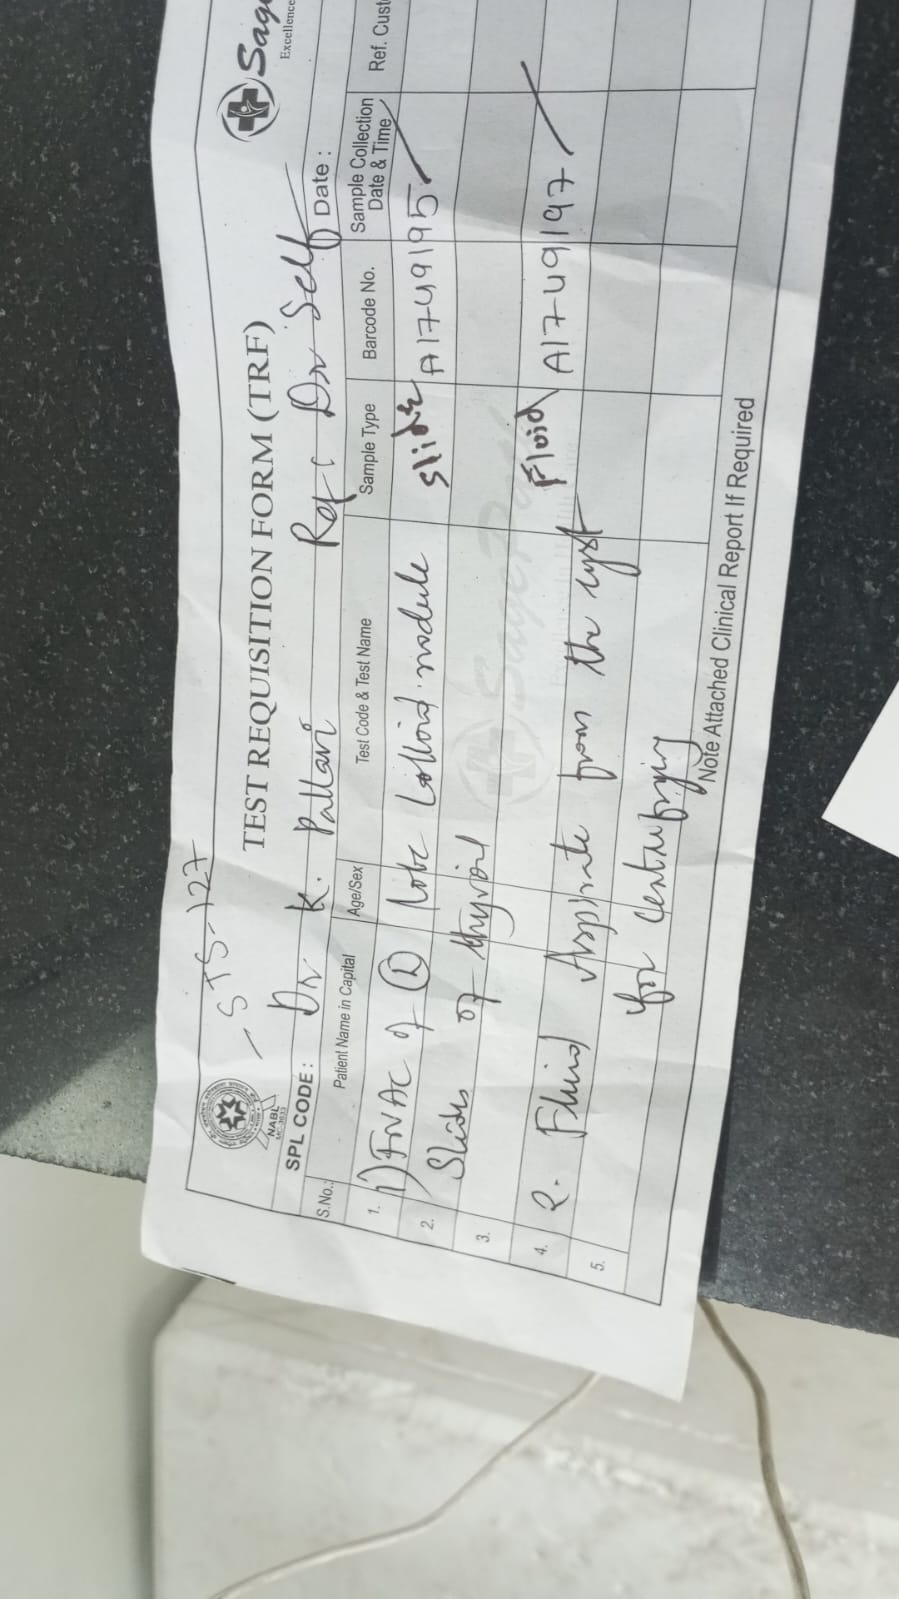 - STS-127
NABL
TEST REQUISITION FORM (TRF)
Sage
Excellence
SPL CODE: Dr K. Pallavi Ref: Dr Self Date:
S.No.: Patient Name in Capital Age/Sex Test Code & Test Name Sample Type Barcode No. Sample Collection Date & Time Ref. Cust
1. 1) FNAC of L lobe Colloid nodule slides A1749195
2. Slides of thyroid
3.
4. 2. Fluid Aspirate from the cyst Fluid A1749197
5. for centrifuging
Note Attached Clinical Report If Required